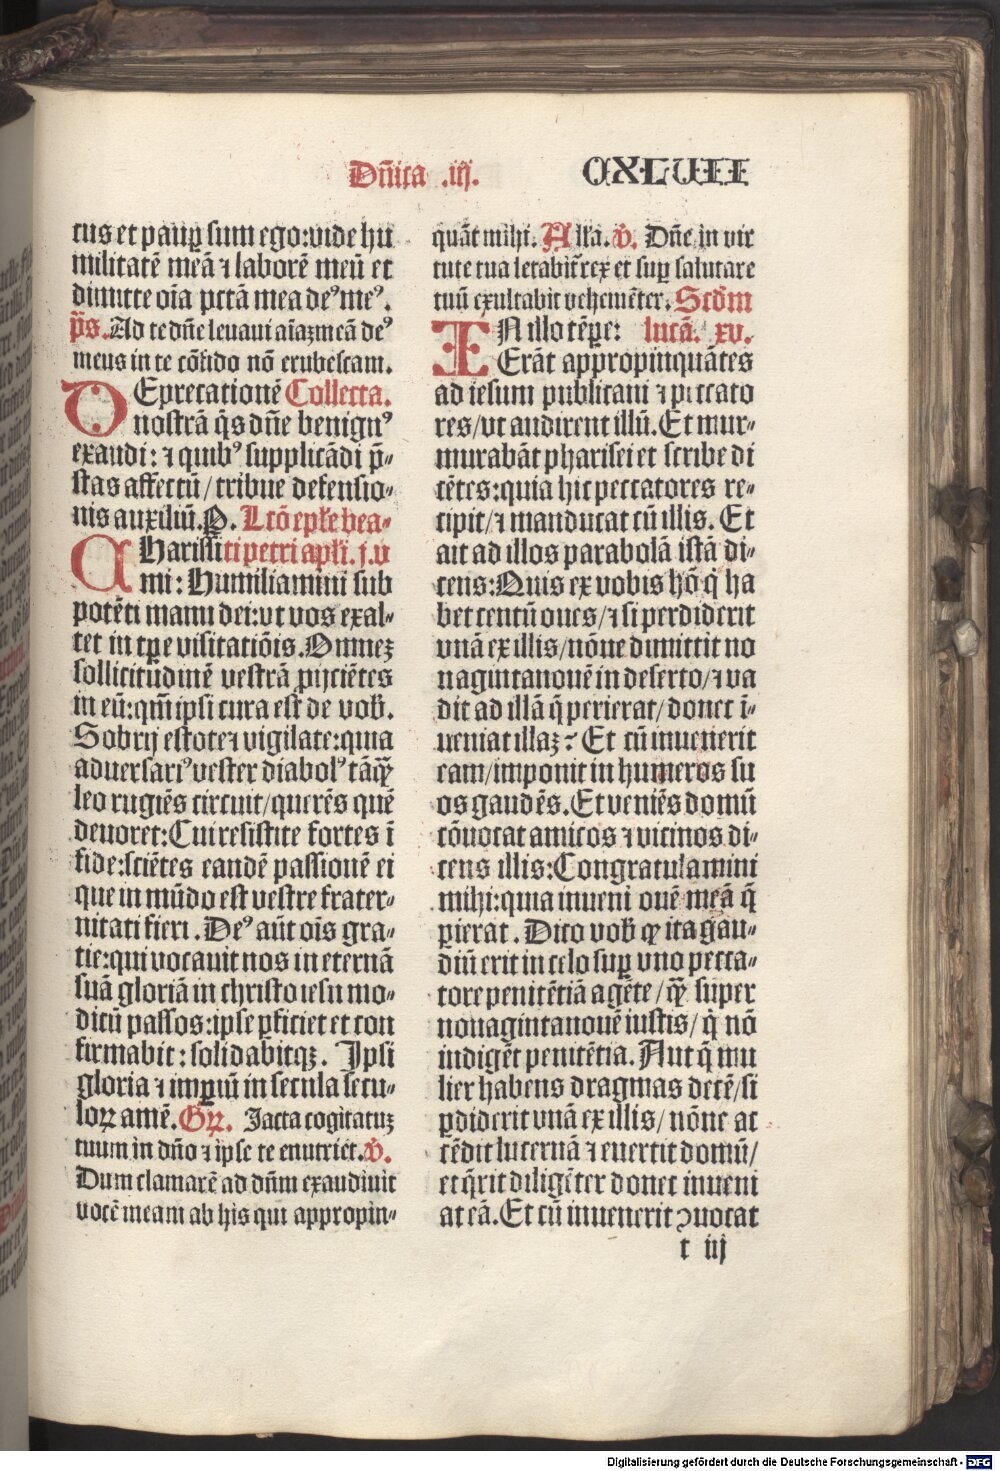 Dn̄ica .iij.
CXLVIII
cus et paup̲ sum ego: vide hu
militatē meā ⁊ laborē meū et
dimitte oīa pctā mea deꝰmeꝰ.
p̄s. Ad te dn̄e leuaui aīaꝫ meā deꝰ
meus in te cōfido nō erubescam.
DEprecationē Collecta.
nostrā q̄s dn̄e benignꝰ
exaudi: ⁊ quibꝰ supplicādi p̄-
stas affectū/tribue defensio-
nis auxiliū. P. Lcō ep̄le bea-
CHarissi ti petri apl̄i. j. v
mi: Humiliamini sub
potēti manu dei: vt vos exal-
tet in tp̄e visitatiōis. Omneꝫ
sollicitudinē vestrā p̄ijciētes
in eū: qm̄ ipsi cura est de vob̄.
Sobrij estote ⁊ vigilate: quia
aduersariꝰ vester diabolꝰ tāꝙ̄
leo rugiēs circuit/querēs quē
deuoret: Cui resistite fortes ī
fide: sciētes eandē passionē ei
que in mūdo est vestre frater-
nitati fieri. Deꝰ aūt oīs gra-
tie: qui vocauit nos in eternā
suā gloriā in christo iesu mo-
dicū passos: ipse p̲ficiet et con
firmabit: solidabitqꝫ. Ipsi
gloria ⁊ imp̲iū in secula secu-
loꝝ amē. Gꝝ. Iacta cogitatuꝫ
tuum in dn̄o ⁊ ipse te enutriet. v̄.
Dum clamarē ad dn̄m exaudiuit
vocē meam ab his qui appropin-
quāt mihi. Alla. v̄. Dn̄e in vir
tute tua letabit̄ rex et sup̲ salutare
tuū exultabit vehemēter. Scd̄m
IN illo tēp̲e: lucā. xv.
Erāt appropinquātes
ad iesum publicani ⁊ peccato
res/vt audirent illū. Et mur-
murabāt pharisei et scribe di
cētes: quia hic peccatores re-
cipit/⁊ manducat cū illis. Et
ait ad illos parabolā istā di-
cens: Quis ex vobis hō q̇ ha
bet centū oues/⁊ si perdiderit
vnā ex illis/nōne dimittit no
nagintanouē in deserto/⁊ va
dit ad illā q̄ perierat/donec ī-
ueniat illaꝫ? Et cū inuenerit
eam/imponit in humeros su
os gaudēs. Et veniēs domū
cōuocat amicos ⁊ vicinos di-
cens illis: Congratulamini
mihi: quia inueni ouē meā q̄
p̲ierat. Dico vob̄ ꝙ ita gau-
diū erit in celo sup̲ vno pecca-
tore penitētiā agēte/ꝙ̄ super
nonagintanouē iustis/q̇ nō
indigēt penitētia. Aut q̄ mu
lier habens dragmas decē/si
p̲diderit vnā ex illis/nōne ac
cēdit lucernā ⁊ euertit domū/
et q̄rit diligēter donec inueni
at eā. Et cū inuenerit ꝯuocat
t iij
Digitalisierung gefördert durch die Deutsche Forschungsgemeinschaft - DFG